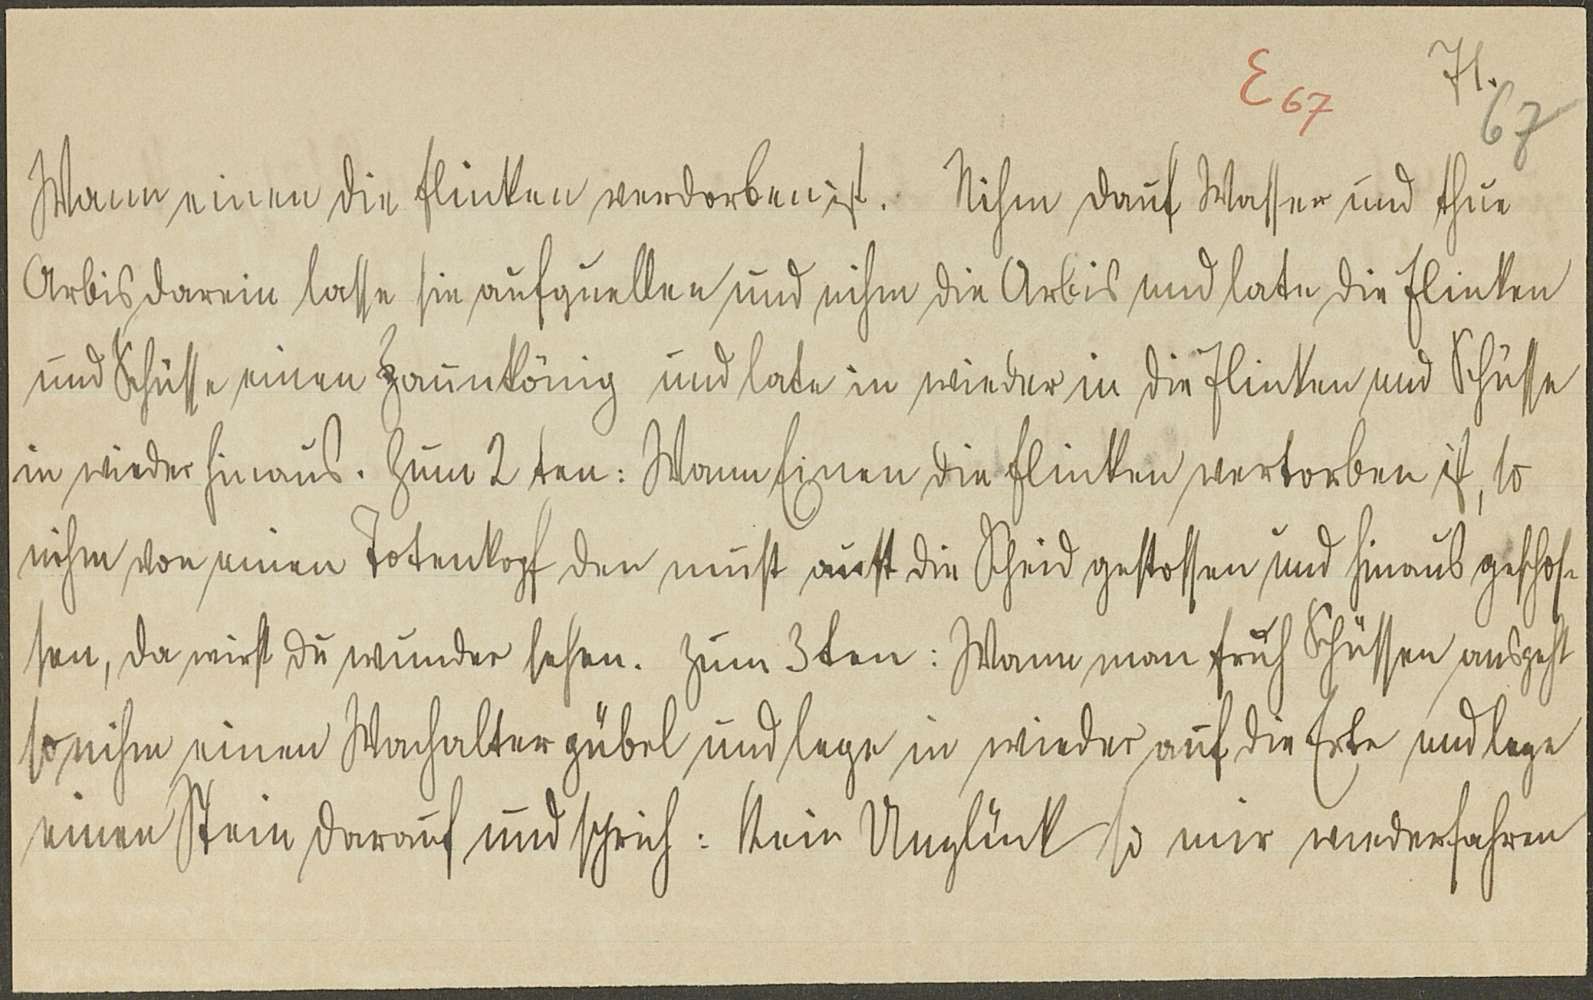 E 67 71.
67
Wann einen die flinken verdorben ist. Nihm dauf Wasser und thue
Arbis darein lasse sie aufquellen und nihm die Arbis und late die flinken
und Schüsse einen Zaunkönig und late in wieder in die Flinken und Schüsse
in wieder hinaus. Zum 2 ten: Wann Einen die flinken vertorben ist, so
nihm von einen Totenkopf den must auff die Scheid gestossen und hinaus geschos-
sen, da wirst du wunder sehen. Zum 3 ten: Wann man fruh Schüssen ausgeht
so nihm einen Wachalter gübel und lege in wieder auf die Erte und lege
einen Stein darauf und sprich: Kein Unglück so mir wiederfahren